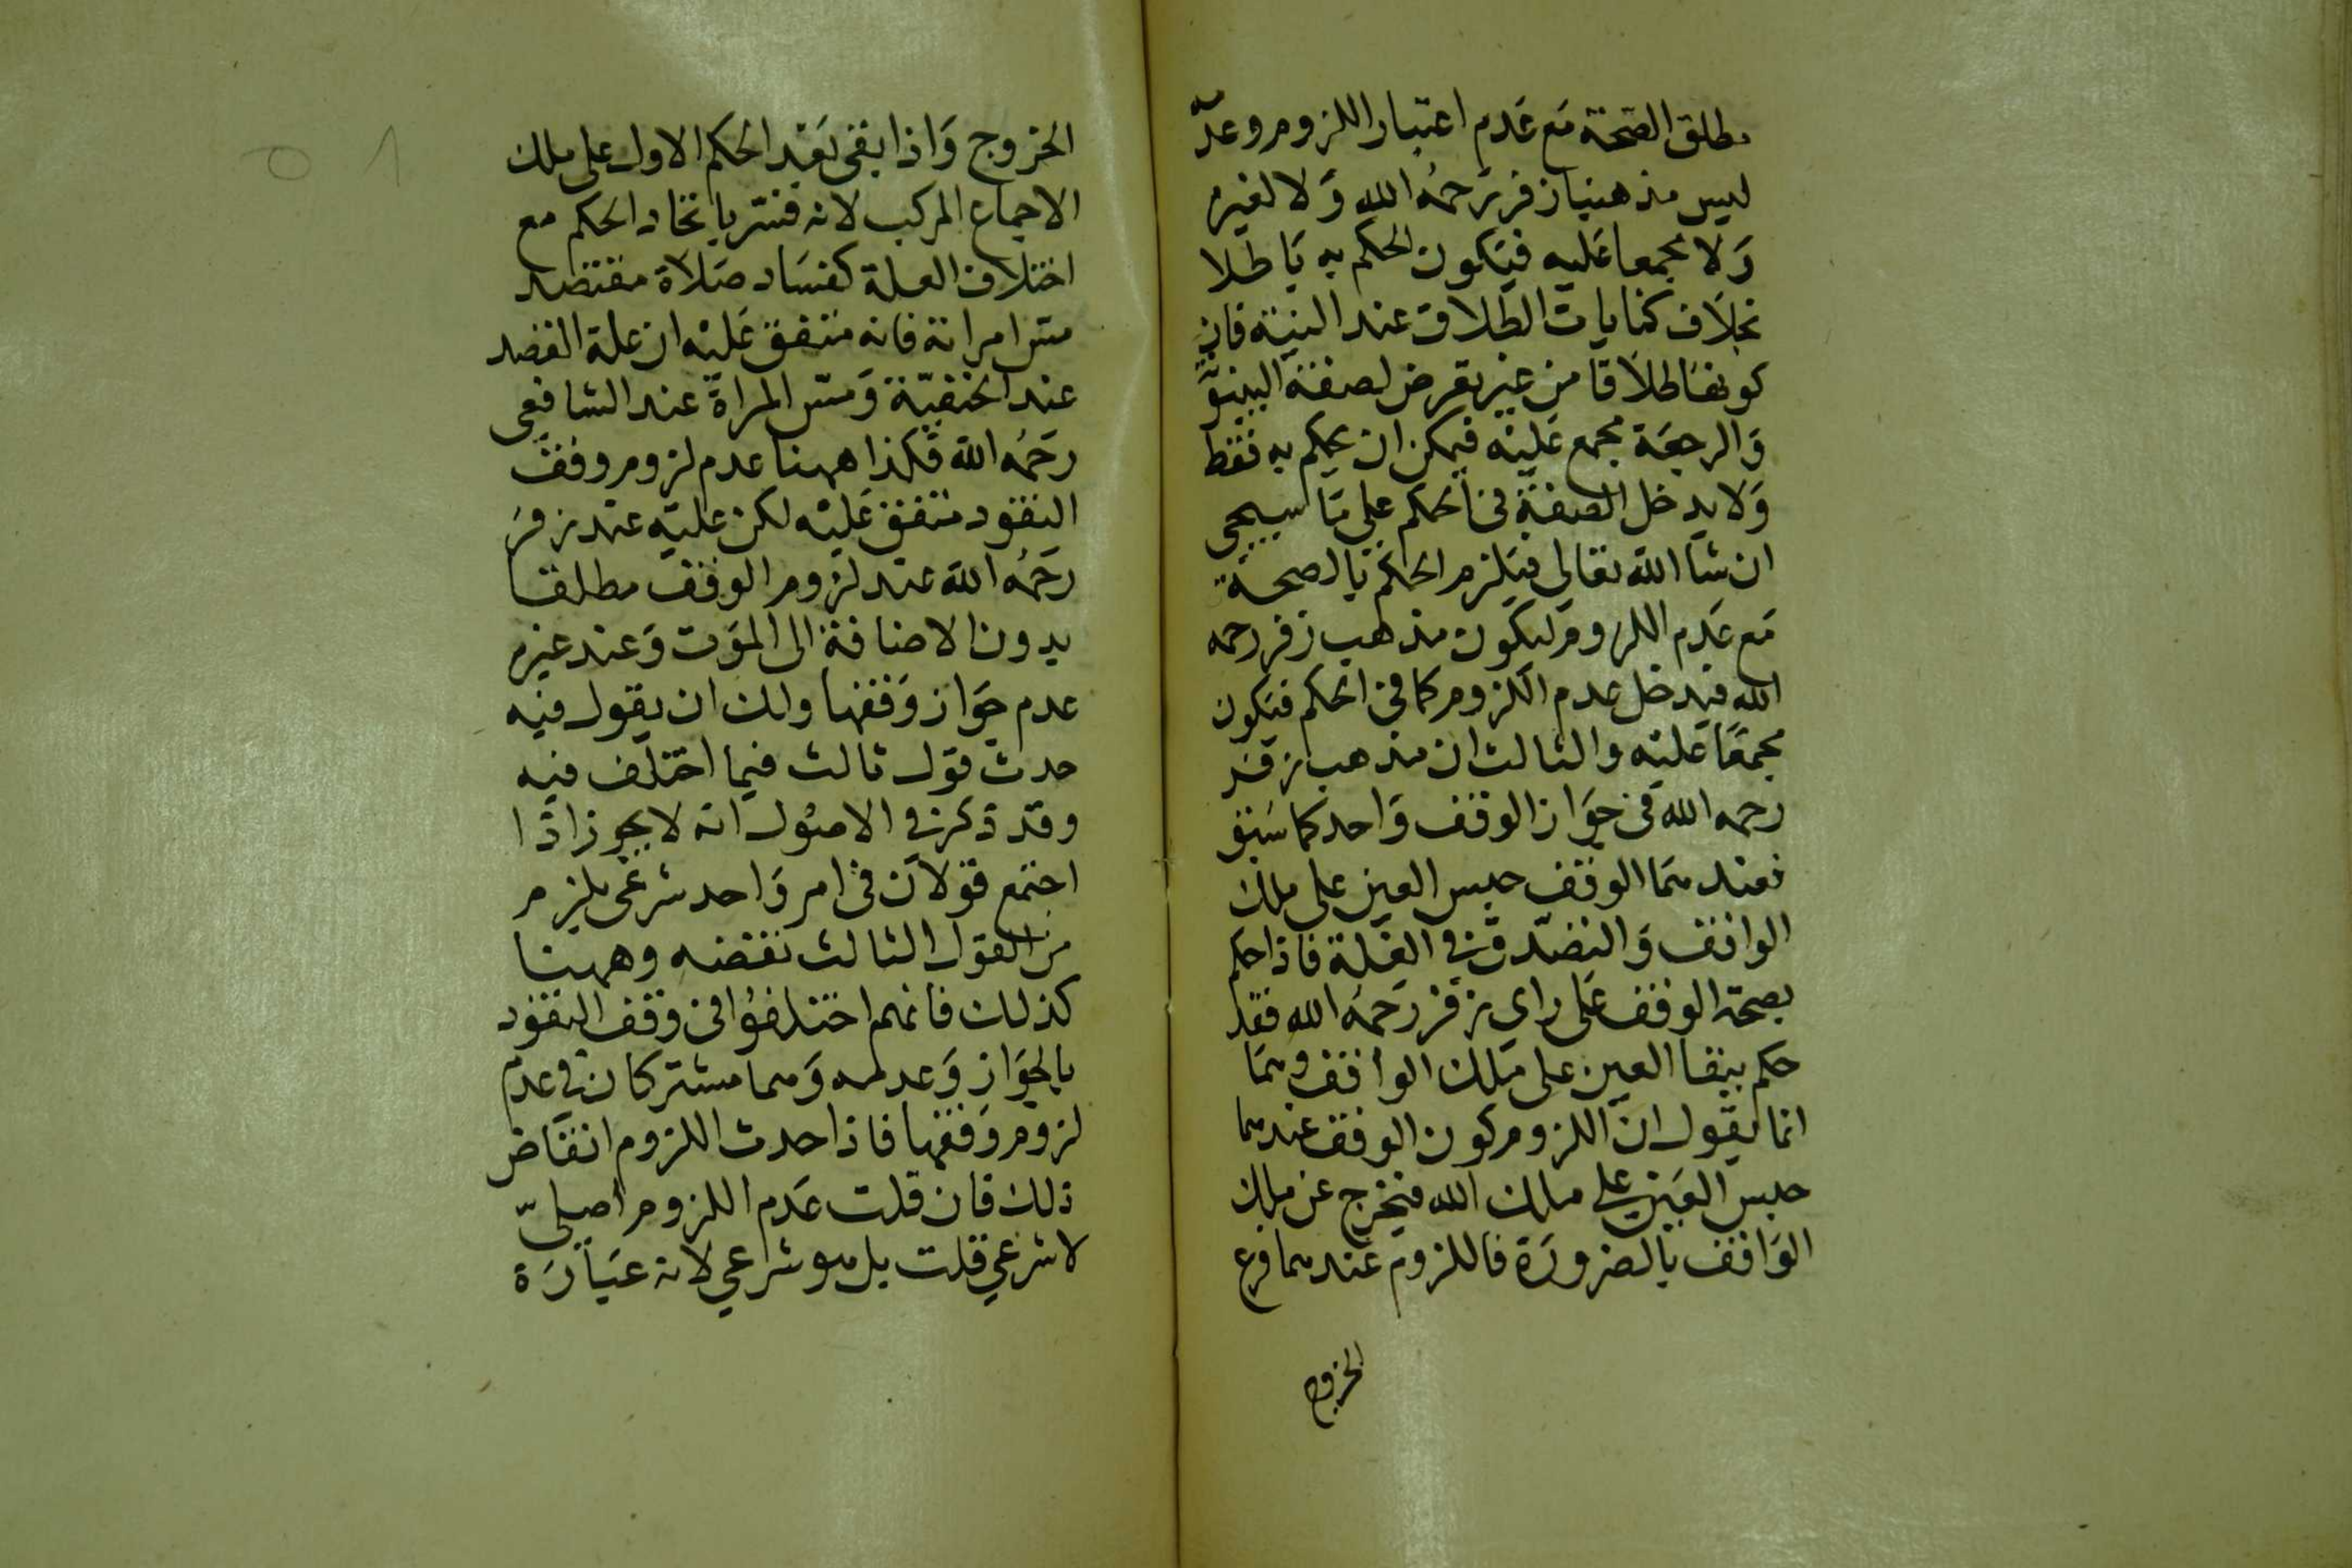 مطلق الصحة مع عدم اعتبار اللزوم وعدّ
ليس مذهبنا زفر رحمه الله ولا لغيره
ولا مجمعا عليه فيكون الحكم به باطلا
بخلاف كنايات الطلاق عند النية فان
كونها طلاقا من غير تعرض لصفة البينونة
والرجعة مجمع عليه فيمكن ان يحكم به فقط
ولا يدخل الصفة في الحكم على ما سيجي
ان شا الله تعالى فيلزم الحكم بالصحة
مع عدم اللزوم ليكون مذهب زفر رحمه
الله فيدخل عدم اللزوم كما في الحكم فيكون
مجمعا عليه والثالث ان مذهب زفر
رحمه الله في جواز الوقف واحد كما سبق
فعندهما الوقف حبس العين على ملك
الواقف والتصدق في الغلة فاذا حكم
بصحة الوقف على راي زفر رحمه الله فقد
حكم ببقا العين على ملك الواقف وهما
انما يقول ان اللزوم كون الوقف عندهما
حبس العين على ملك الله فيخرج عن ملك
الواقف بالضرورة فاللزوم عندهما فرع
الخروج
الخروج واذا بقي بعد الحكم الاول على ملك
الاجماع المركب لانه فسر باتحاد الحكم مع
اختلاف العلة كفساد صلاة مفتصد
مس امراته فانه متفق عليه ان علة الفصد
عند الحنفية ومس المراة عند الشافعي
رحمه الله فكذا ههنا عدم لزوم وقف
النقود متفق عليه لكن عليه عند زفر
رحمه الله عند لزوم الوقف مطلقا
بدون الاضافة الى الموت وعند غيره
عدم جواز وقفها ولك ان يقول فيه
حدث قول ثالث فيما اختلف فيه
وقد ذكر في الاصول انه لا يجوز اذا
اجتمع قولان في امر واحد شرعي يلزم
من القول الثالث نقضه وههنا
كذلك فانهم اختلفوا في وقف النقود
بالجواز وعدمه وهما مشتركان في عدم
لزوم وقفها فاذا حدث اللزوم انتقاض
ذلك فان قلت عدم اللزوم اصليّ
لا شرعي قلت بل هو شرعي لانه عبارة